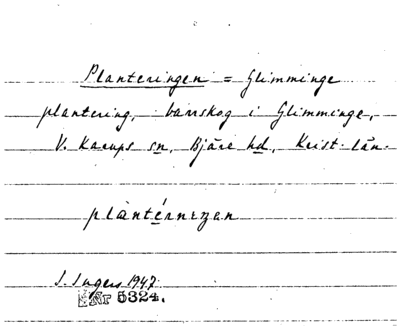 Planteringen = Glimminge
plantering, barrskog i Glimminge,
V. Karups sn, Bjäre hd, Krist. län.
S. Ingers 1947
Nr 5324.